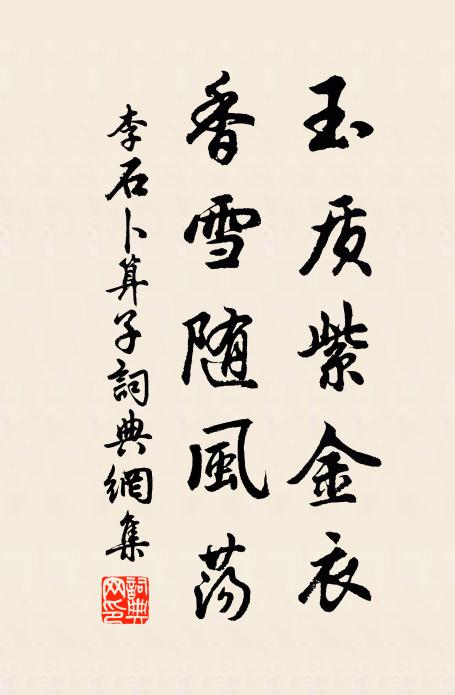 玉质紫金衣
香雪随風荡
李石卜算子詞典網集
詞典网印